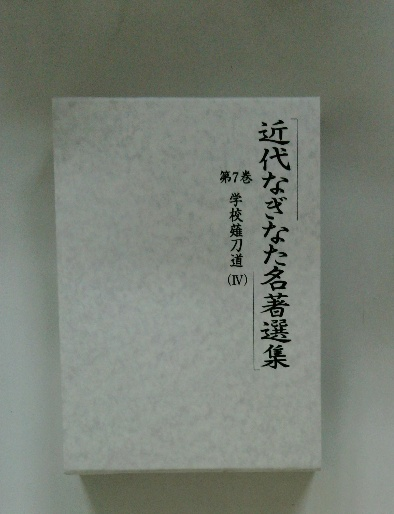 近代なぎなた名著選集
第7巻
学校薙刀道
(Ⅳ)